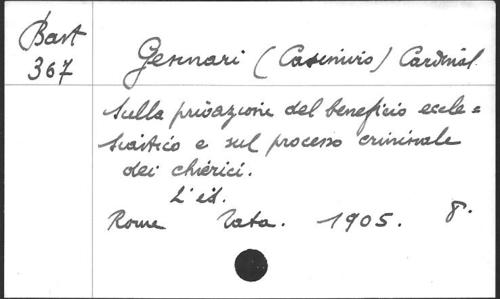 Bart
367
Gennari (Casimiro) Cardinal
Sulla privazione del beneficio eccle=
siastico e sul processo criminale
dei chierici.
2' ed.
Rome Tata. 1905. 8.